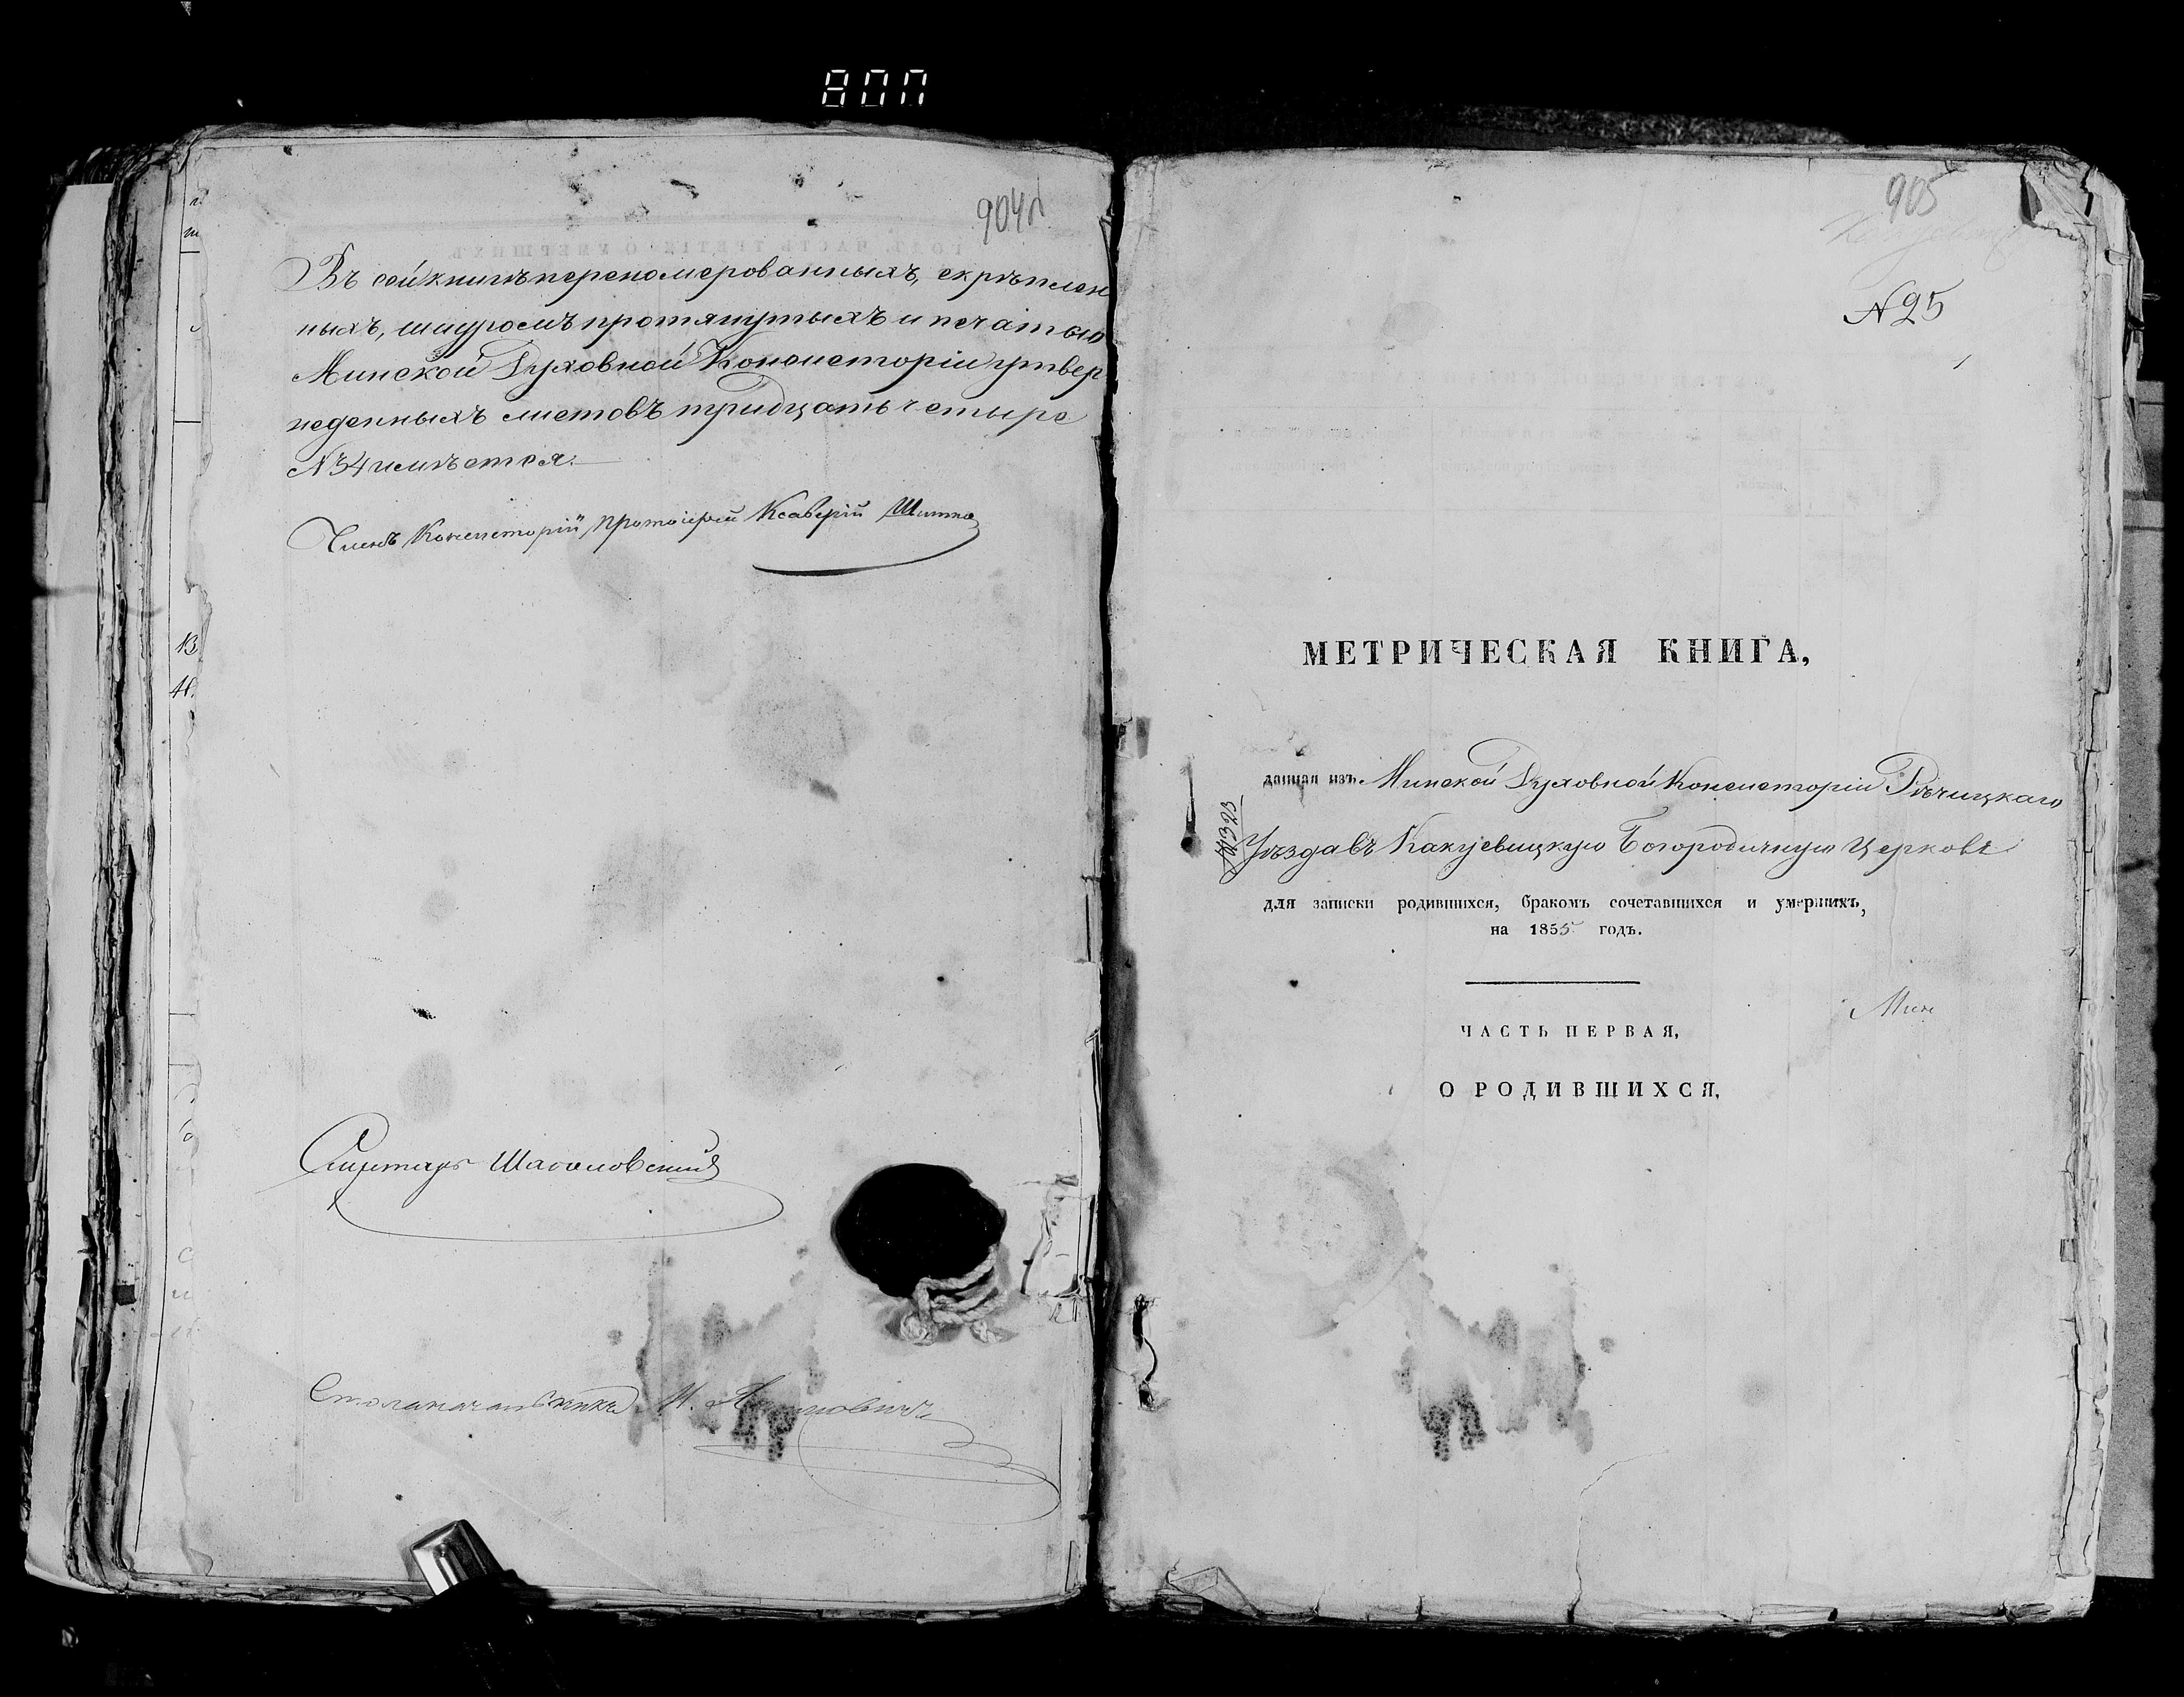 904
Въ сей книгѣ перенумерованныхъ, скрѣплен
ныхъ, шнуромъ протянутыхъ и печатью
Минской Духовной Консисторіи утвер
жденныхъ листовъ тридцать четыре
№ 34 имѣется.
Членъ Консисторіи, протоіерей Ксаверій
Секретарь
Столоначальникъ
905
№ 25
МЕТРИЧЕСКАЯ КНИГА,
данная изъ Минской Духовной Консисторіи Рѣчицкаго
№ 323
Уѣзда въ Какуевицкую Богородичную Церковь
для записки родившихся, бракомъ сочетавшихся и умершихъ,
на 1855 годъ.
Мин
ЧАСТЬ ПЕРВАЯ,
О РОДИВШИХСЯ.